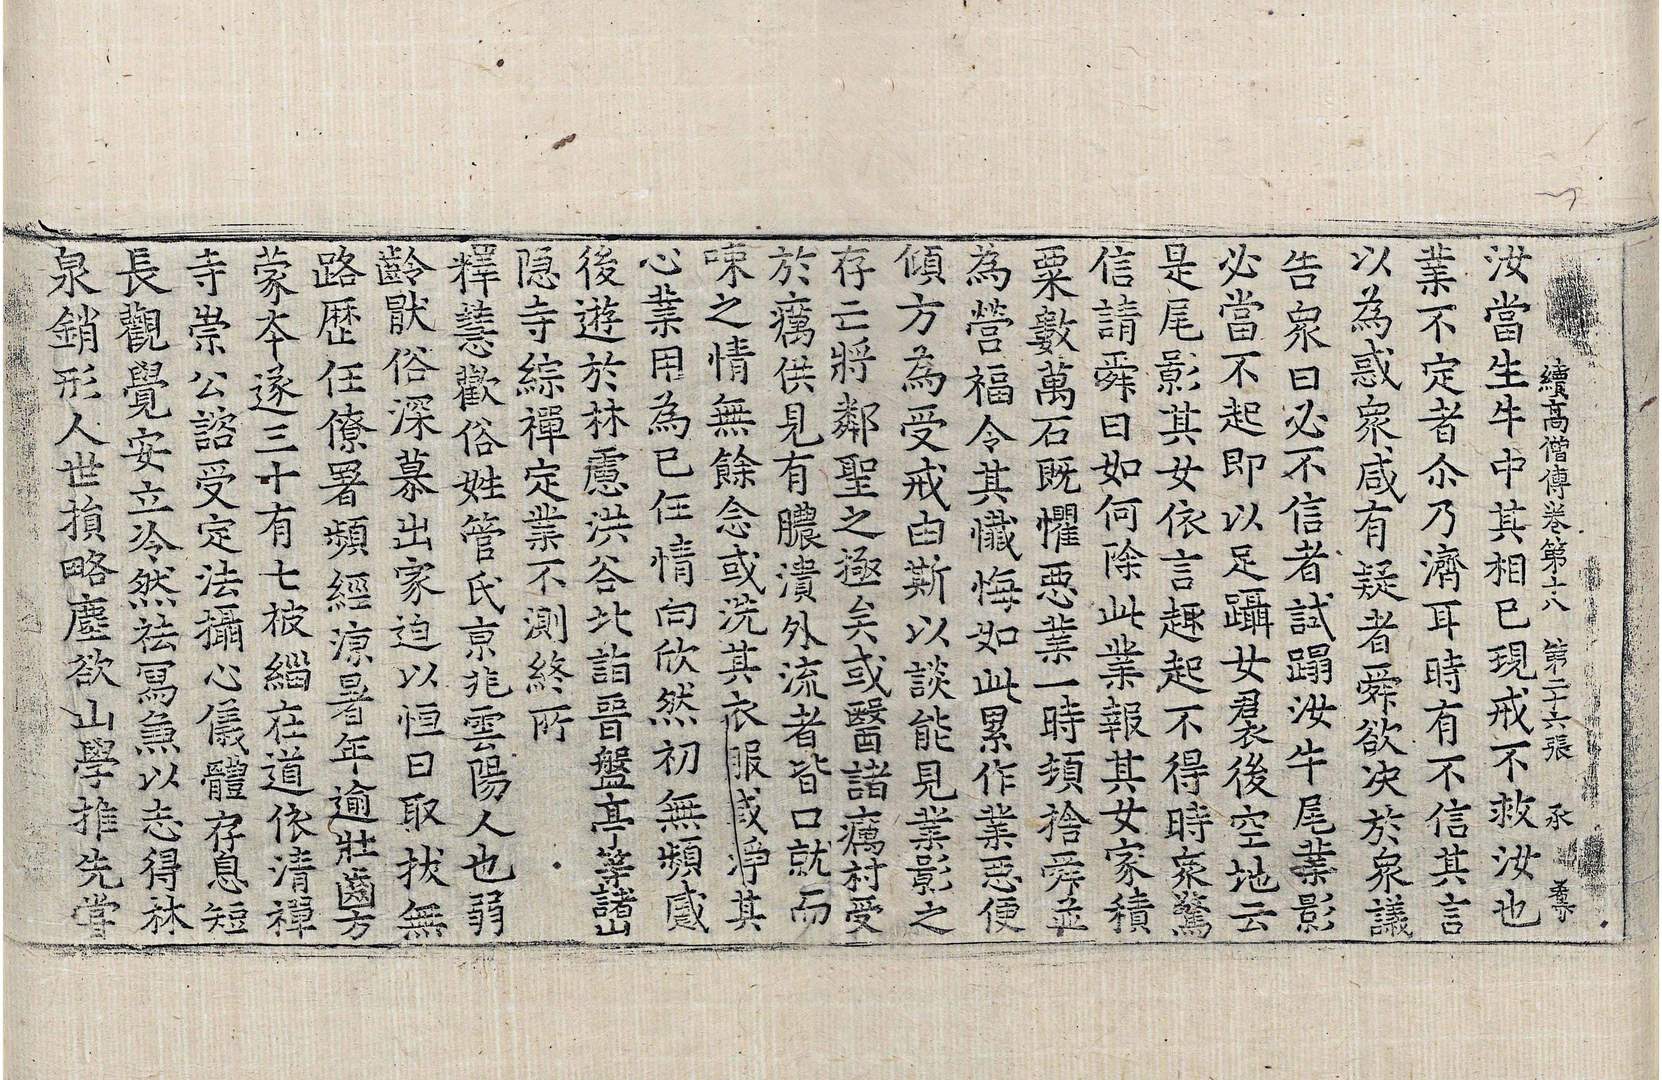 續高僧傳卷第十八　第二十六張　承
汝當生牛中其相已現戒不救汝也
業不定者尒乃濟耳時有不信其言
以為惑衆咸有疑者舜欲决於衆議
告衆曰必不信者試蹋汝牛尾業影
必當不起即以足躡女裙後空地云
是尾影其女依言趣起不得時衆驚
信請舜曰如何除此業報其女家積
粟數萬石既懼惡業一時頓捨舜並
為營福令其懺悔如此累作業惡便
傾方為受戒由斯以談能見業影之
存亡將鄰聖之極矣或醫諸癘村受
於癘供見有膿潰外流者皆口就而
㖩之情無餘念或洗其衣服或淨其
心業用為己任情向欣然初無頻慼
後遊於林慮洪谷北詣晉盤亭等諸山
隱寺綜禪定業不測終所
釋慧歡俗姓管氏京兆雲陽人也弱
齡猒俗深慕出家迫以恒日取拔無
路歷任僚署頻經涼暑年逾壯齒方
蒙本遂三十有七被緇在道依清禪
寺崇公諮受定法攝心儀體存息短
長觀覺安立冷然祛寫兼以志得林
泉銷形人世損略塵欲山學推先嘗